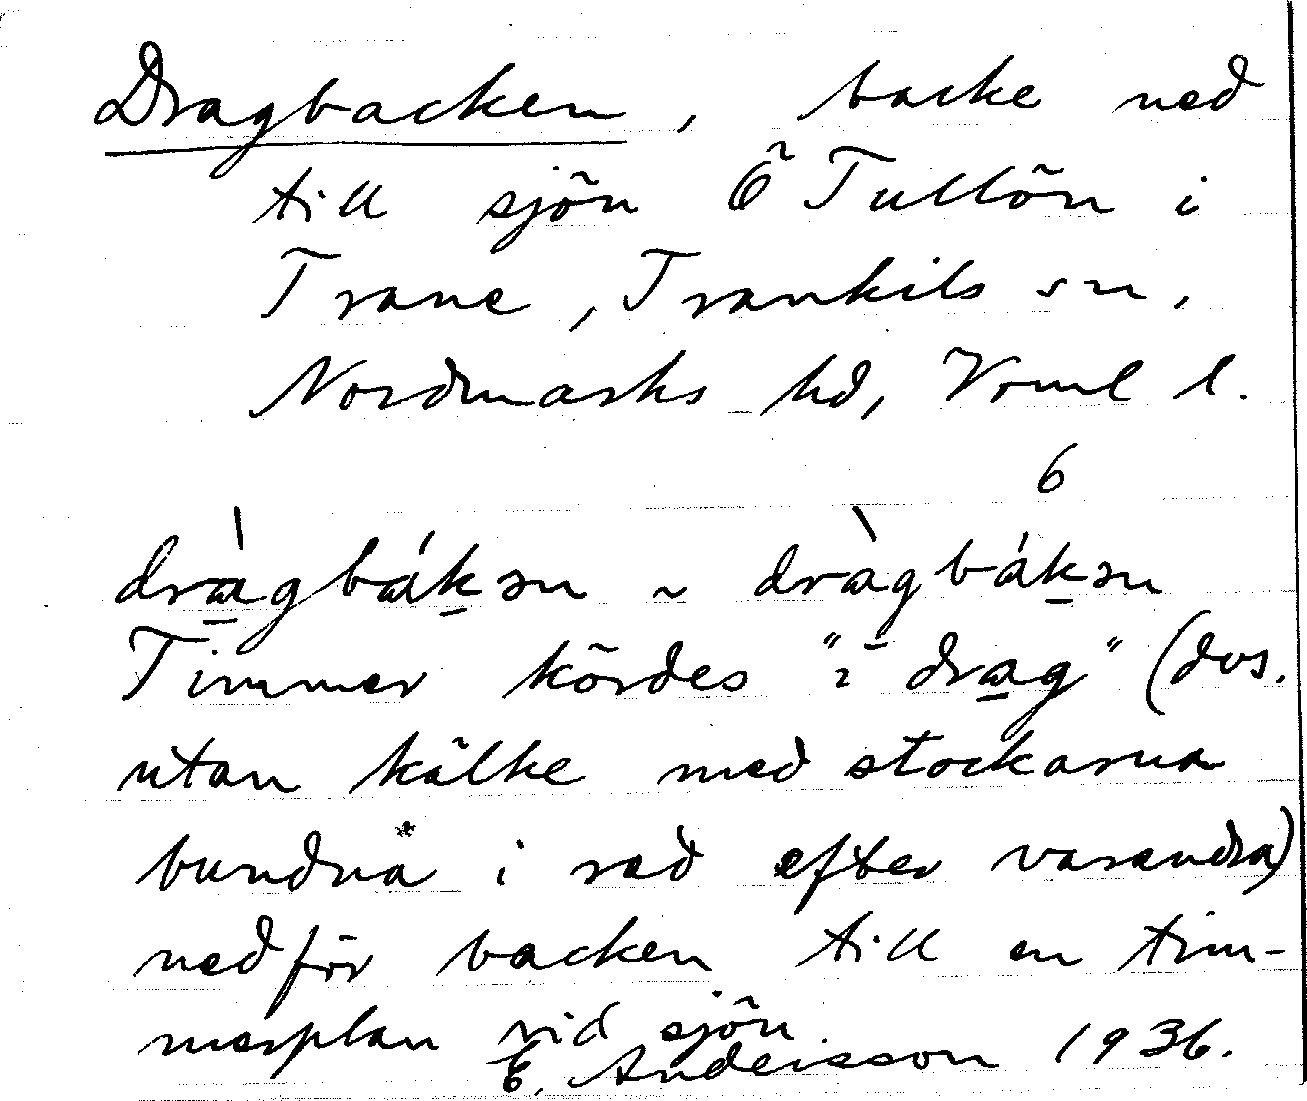 Dragbacken, backe ned
till sjön Ö Tullön i
Trane, Trankils sn,
Nordmarks hd, Vrml l.
6
dràgbákən ~ dràgbákən
Timmer kördes "i drag" (dvs.
utan kälke med stockarna
bundna i rad efter varandra)
nedför backen till en tim-
merplan vid sjön
E. Andersson 1936.